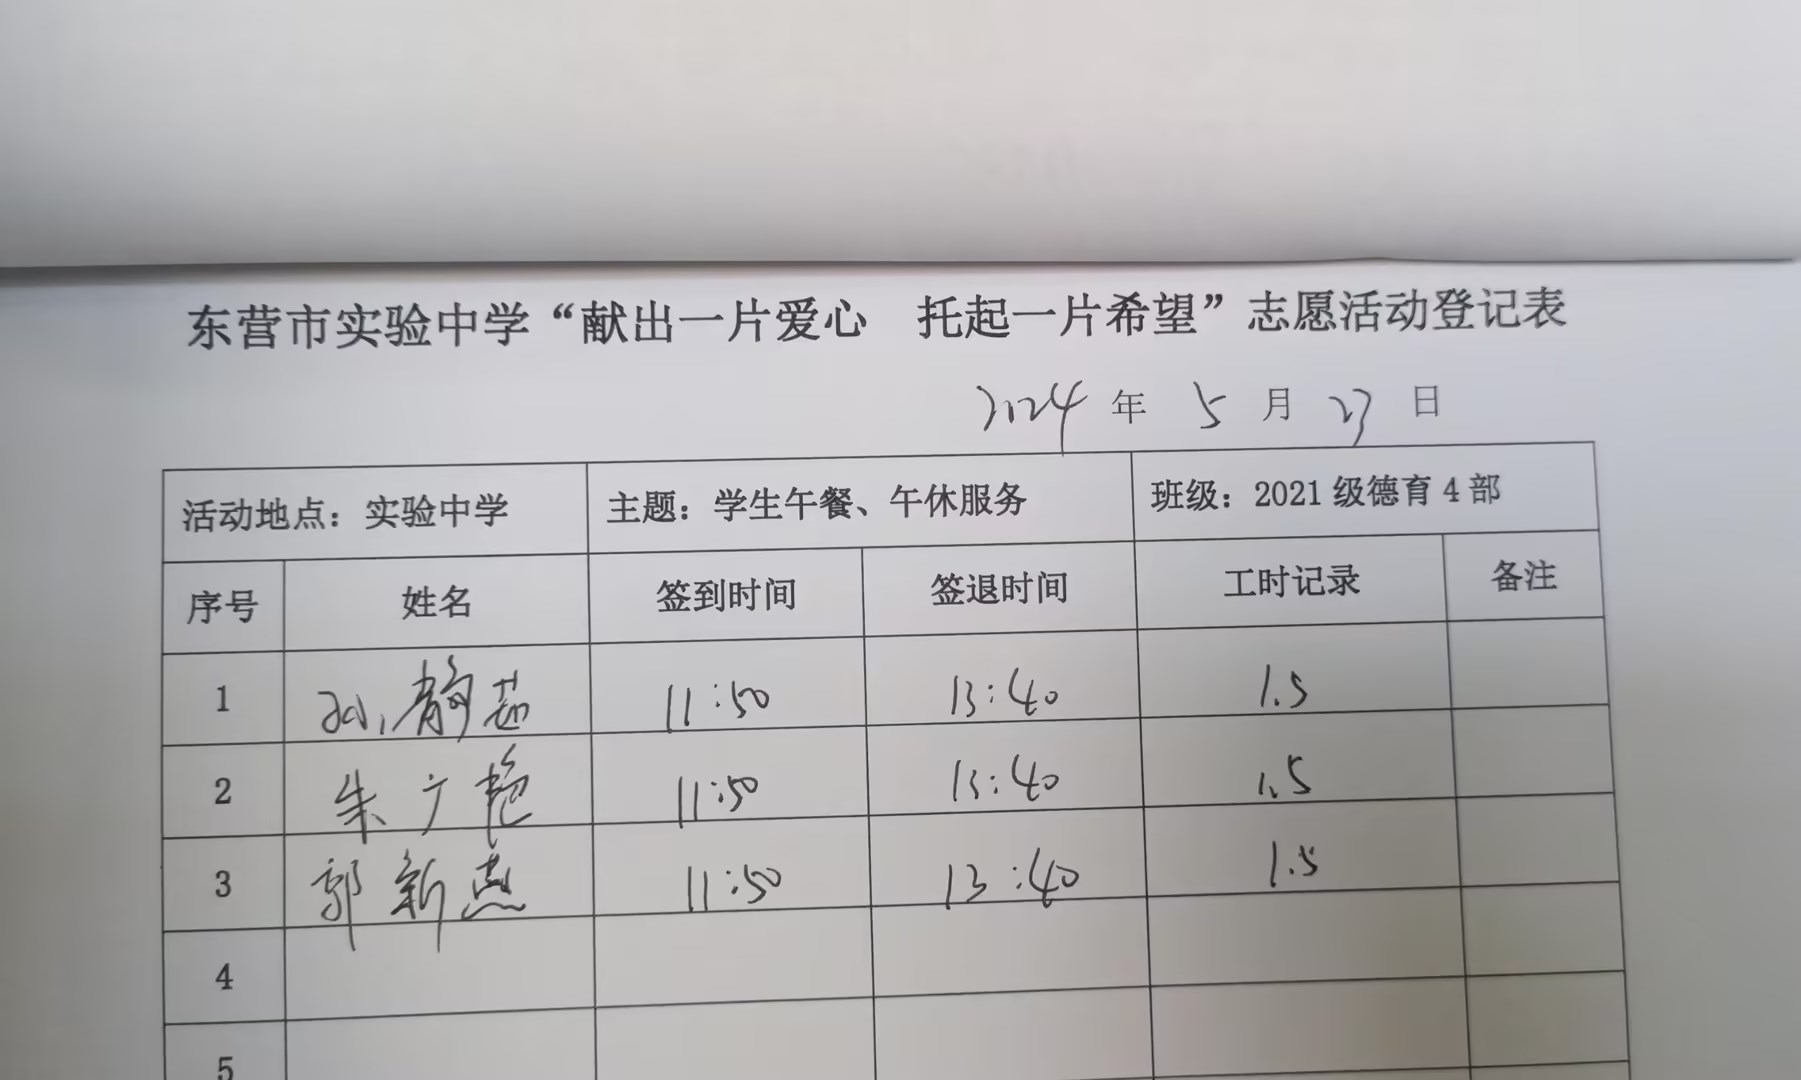 东营市实验中学“献出一片爱心 托起一片希望”志愿活动登记表
2024 年 5 月 23 日
活动地点：实验中学 主题：学生午餐、午休服务 班级：2021级德育4部
序号 姓名 签到时间 签退时间 工时记录 备注
1 孙静茹 11:50 13:40 1.5
2 朱广艳 11:50 13:40 1.5
3 郭新燕 11:50 13:40 1.5
4
5